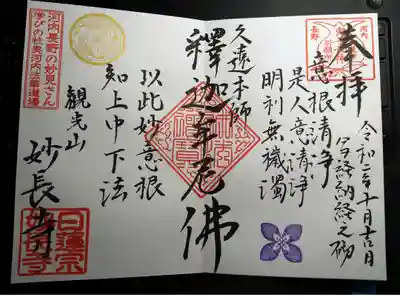 奉拝
令和二年十月吉日
意根清浄
是人意清浄
明利無穢濁
久遠本師
釋迦牟尼佛
以此妙意根
知上中下法
観光山
妙長寺
河内長野の妙見さん
学びの杜奥河内法華道場
日蓮宗
妙長寺